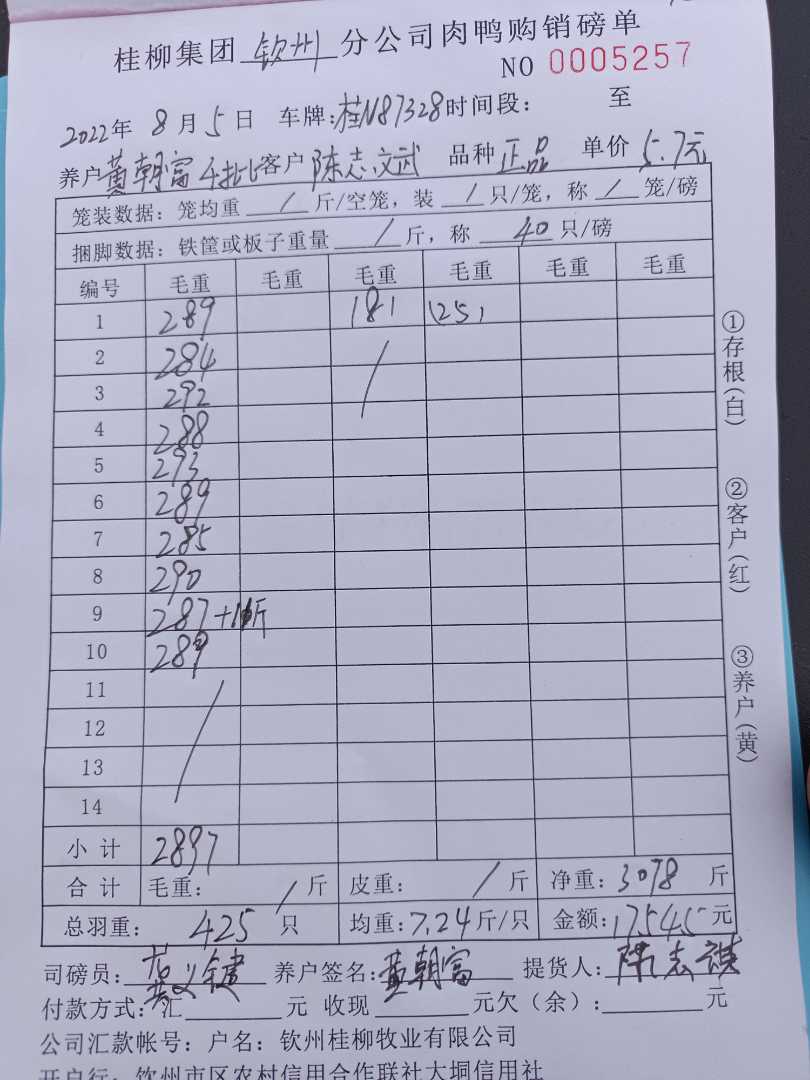 桂柳集团 钦州 分公司肉鸭购销磅单
NO 0005257
2022年 8月5日 车牌:桂N87328 时间段: 至
养户 黄朝富4批 客户 陈志文武 品种 正品 单价 5.7元
笼装数据:笼均重 / 斤/空笼,装 / 只/笼,称 / 笼/磅
捆脚数据:铁筐或板子重量 / 斤,称 40 只/磅
编号 毛重 毛重 毛重 毛重 毛重 毛重
1 289 181 (25)
2 284 /
3 292
4 288
5 293
6 289
7 285
8 290
9 287+11斤
10 289
11 /
12
13
14
小计 2897
合计 毛重: / 斤 皮重: / 斤 净重:3078 斤
总羽重: 425 只 均重:7.24斤/只 金额:17545元
司磅员:黄义健 养户签名:黄朝富 提货人:陈志
付款方式:汇 元 收现 元欠(余): 元
公司汇款帐号:户名:钦州桂柳牧业有限公司
开户行:钦州市区农村信用合作联社大垌信用社
①存根(白)
②客户(红)
③养户(黄)